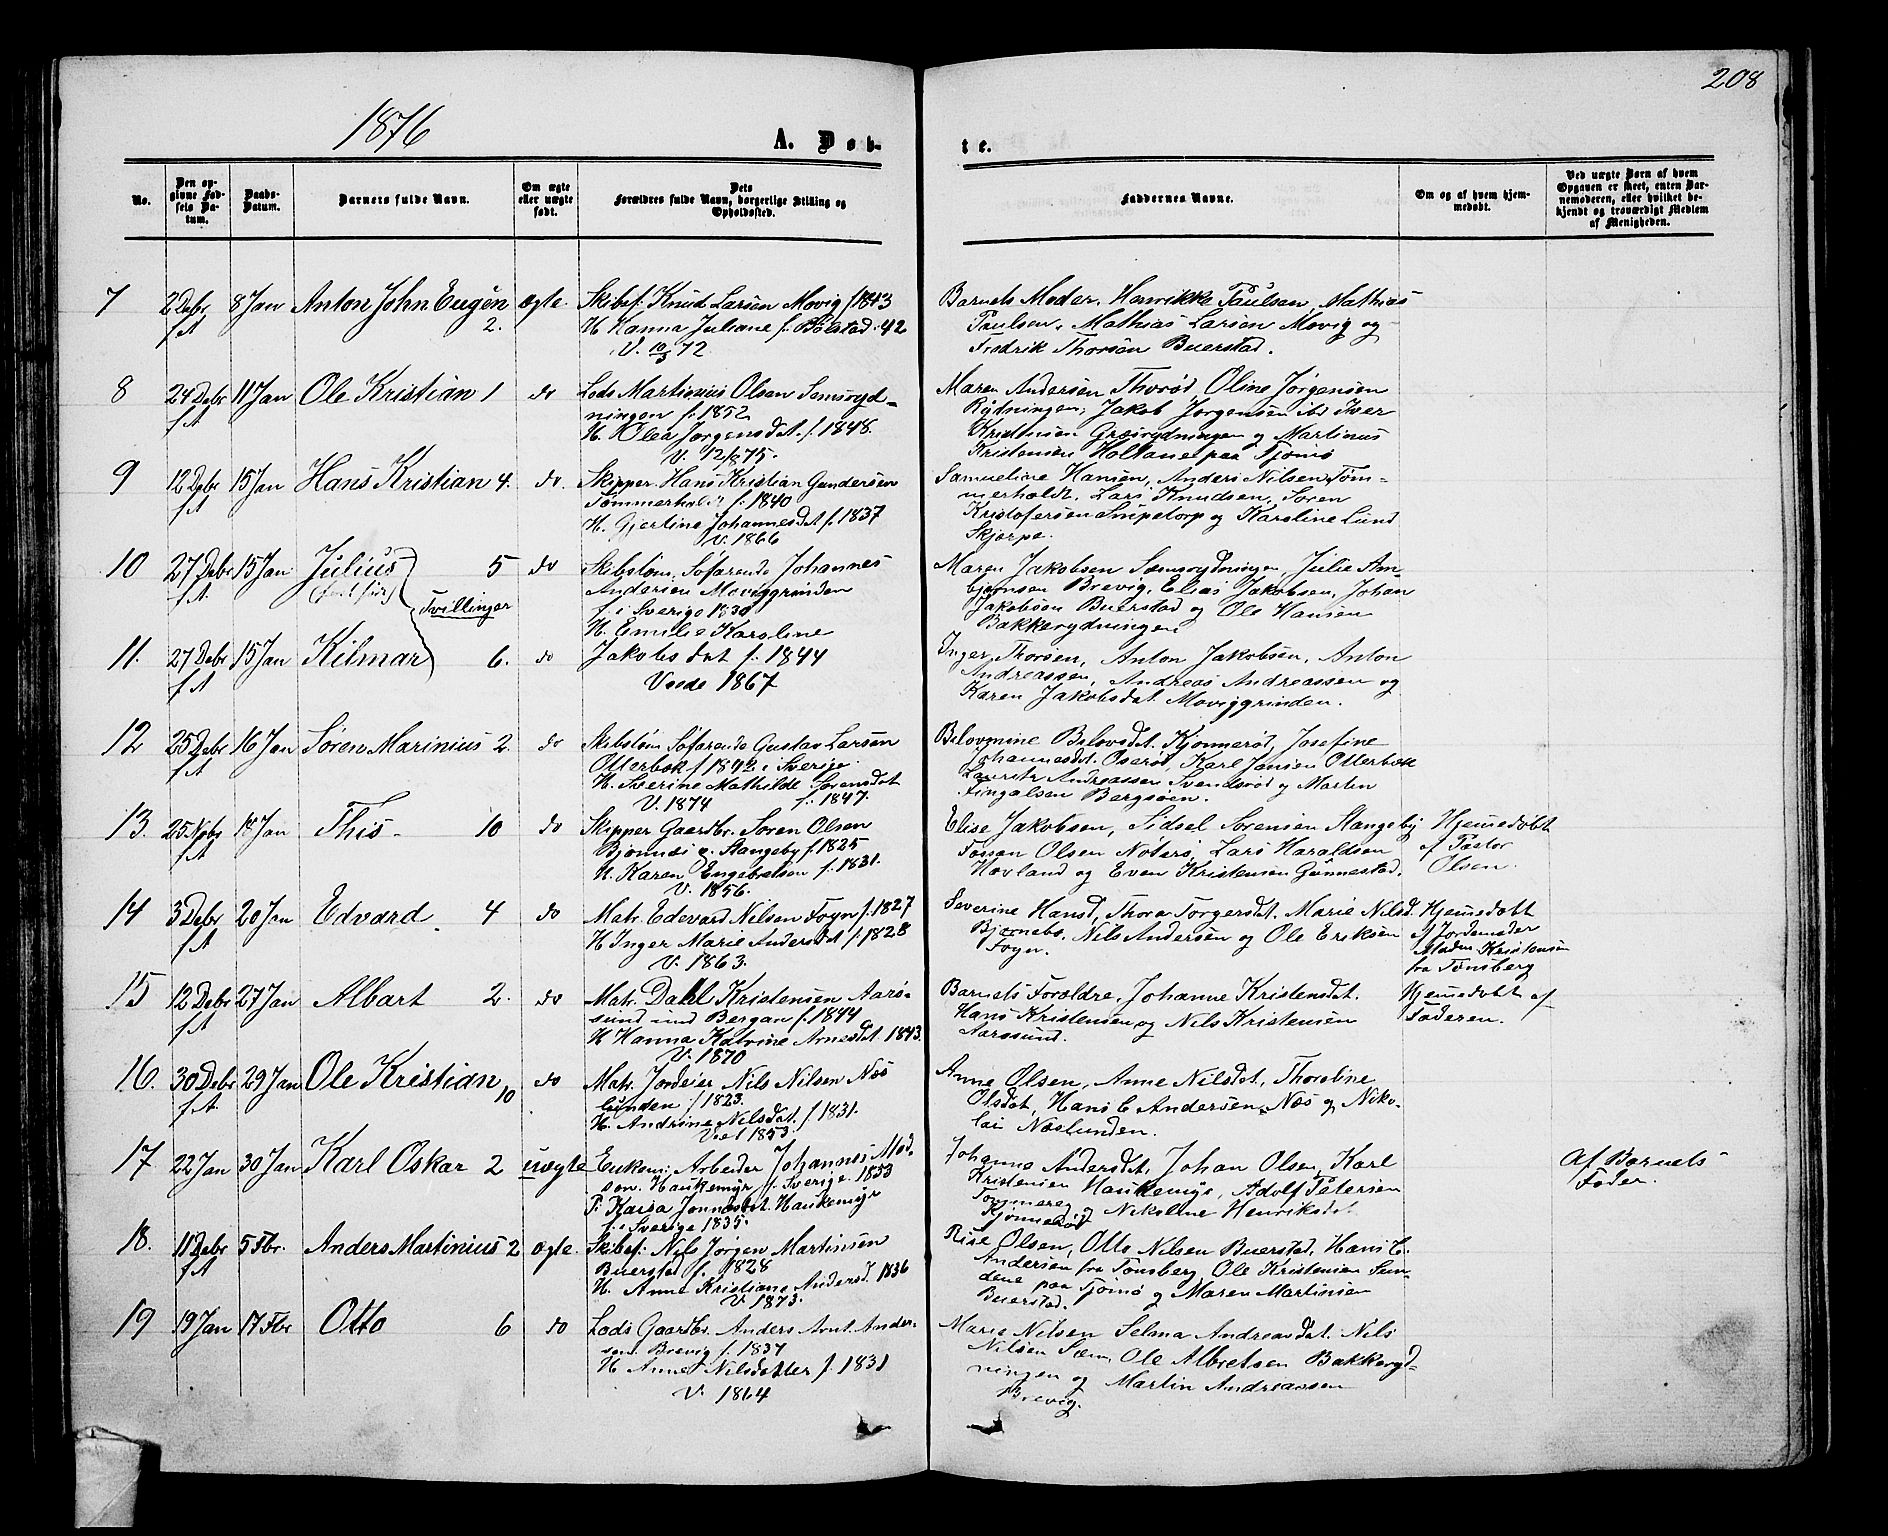 208
1876
A. Døb-
te.
No.
Den op-
givne Fød-
sels Da-
tum.
Daabs-
Datum.
Barnets fulde Navn.
Om ægte
eller uægte
født.
Dets
Forældres fulde Navn, borgerlige Stilling og
Opholdssted.
Faddernes Navne.
Om og af hvem hjem-
medøbt.
Ved uægte Børn af hvem
Opgaven er skeet, enten Bar-
nemoderen, eller hvilket be-
kjendt og troværdigt Medlem
af Menigheden.
7 2 Debr 8 Jan Anton John Eugén ægte. Skibsf. Knud Larsen Movig f 1843
f A 2. H. Hanna Juliane f. Bølstad. 42
V. 10/3 72.
Barnets Moder. Henrikke Paulsen, Mathias
Paulsen, Mathias Larsen Movig og
Fredrik Thorsen Buerstad.
8 24 Debr 11 Jan Ole Kristian 1 do Lods Martinius Olsen Semsryd=
f A ningen f. 1852
H. Olea Jørgensdet. f. 1848.
V. 12/8 75.
Maren Andersen Thorød, Oline Jørgensen
Rydningen, Jakob Jørgensen ibd Iver
Kristensen Græsrydningen og Martinus
Kristensen Holtane paa Tjømø
9 12 Debr 15 Jan Hans Kristian 4. do. Skipper Hans Kristian Gundersen
f A Tømmerholt f. 1840
H. Gjertine Johannesdet f. 1837
V. 1866
Samueline Hansen, Anders Nilsen Tøm=
merholdt, Lars Knudsen, Søren
Kristofersen Snipetorp og Karoline Lund
Skjerpe.
10 27 Debr 15 Jan Julius 5 do Skibstøm. Søfarende Johannes
f. A. (født først) Andersen Moviggrinden
Tvillinger f. i Sverige 1830
H. Emilie Karoline
Maren Jakobsen Semsrydningen, Julie Am-
bjørnsen Brevig, Elias Jakobsen, Johan
Jakobsen Buerstad og Ole Hansen
Bakkerydningen
11. 27 Debr 15 Jan Kilmar 6. do Jakobsdet f. 1844
f A Viede 1867
Inger Thorsen, Anton Jakobsen, Anton
Andreassen, Andreas Andreassen og
Karen Jakobsdet Moviggrinden.
12 25 Debr 16 Jan Søren Marinius 2. do Skibstøm Søfarende Gustav Larsen
f A Otterbæk f 1842 i Sverige.
H. Severine Mathilde Sørensdet
V. 1874 f. 1847.
Belovmine Belovsdet. Kjønnerøt, Josefine
Johannesdet. Oserød, Karl Jansen Otterbæk
Lauritz Andreassen Svendsrød og Martin
Fingalsen Bergsøen.
13. 25 Novbr 18 Jan This - 10 do Skipper Gaardbr. Søren Olsen
f A Bjønnæs v. Stangeby f. 1825
H. Karen Engebretsen f. 1831.
V. 1856.
Elise Jakobsen, Sidsel Sørensen Stangeby
Olsen Nøterø, Lars Haraldsen
Hovland og Even Kristensen Gunnestad.
Hjemedøbt
af Pastor
Olsen.
14 3 Debr 20 Jan Edvard 4 do Matr. Edevard Nilsen Foyn f. 1827
f A H Inger Marie Andersdet f. 1828
V. 1863.
Severine Hansd, Thora Torgersdet. Marie Nilsd.
Bjørnebo. Nils Andersen og Ole Eriksen
Foyn.
Hjemedøbt
af Jordemoder
Kristensen
fra Tønsberg
15 12 Debr 27 Jan Albart 2. do Matr. Dahl Kristensen Aarø-
f A sund und Bergan f. 1844
H Hanna Katrine Arnesdet 1843.
V. 1870
Barnets Forældre, Johanne Kristensdet.
Hans Kristensen og Nils Kristensen
Aarøsund.
Hjemedøbt af
Faderen.
16. 30 Debr 29 Jan Ole Kristian 10 do Matr. Jordeier Nils Nilsen Næs
f. A. lunden f 1823.
H. Andrine Nilsdet. f 1831.
Viet 1853.
Anne Olsen, Anne Nilsdet, Thoroline
Olsdet, Hans C Andersen Næs og Niko-
lai Næslunden.
17. 22 Jan 30 Jan Karl Oskar 2 uægte Enkem. Arbeider Johannes Mod-
sen. Haukemyr f. Sverige. 1853
P. Kaisa Jonnesdet. Haukemyr
f. i Sverige 1835.
Johanne Andersdet, Johan Olsen, Karl
Kristensen Haukemyr, Adolf Petersen
Tømmere og Nikoline Henriksdet
Kjønnerød
Af Barnets
Fader.
18. 11 Debr 5 Fbr. Anders Martinius 2 ægte. Skibsf. Nils Jørgen Martinsen
f A Buerstad f. 1828
H. Anne Kristiane Andersd. 1836
V. 1873.
Olsen, Otto Nilsen Buerstad, Hans C.
Andersen fra Tønsberg Ole Kristensen Sun-
dene paa Tjømø og Maren Martinsen
Buerstad.
19 19 Jan 17 Fbr Otto 6 do Lods Gaardbr. Anders Arnt Ander-
sen. Brevig f. 1837
H. Anne Nilsdatter f. 1831
V. 1864
Marie Nilsen Selma Andreasdet. Nils
Nilsen Sæm, Ole Albretsen Bakkeryd-
ningen og Martin Andreassen
Brevig.